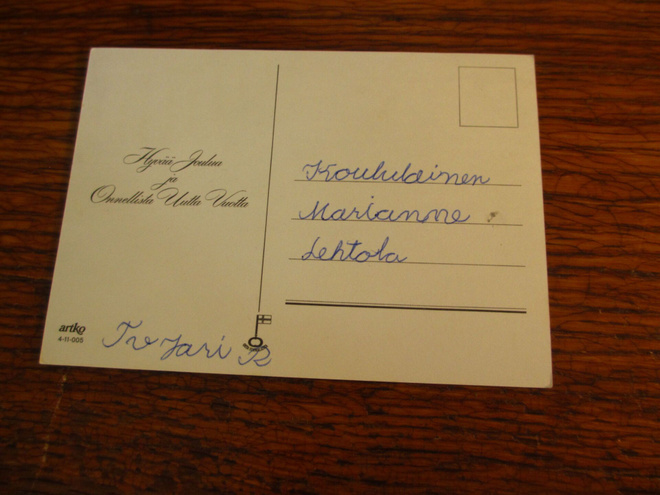 Hyvää Joulua
ja
Onnellista Uutta Vuotta
Koululainen
Marianne
Lehtola
artko
4-11-005
Tv Jari R